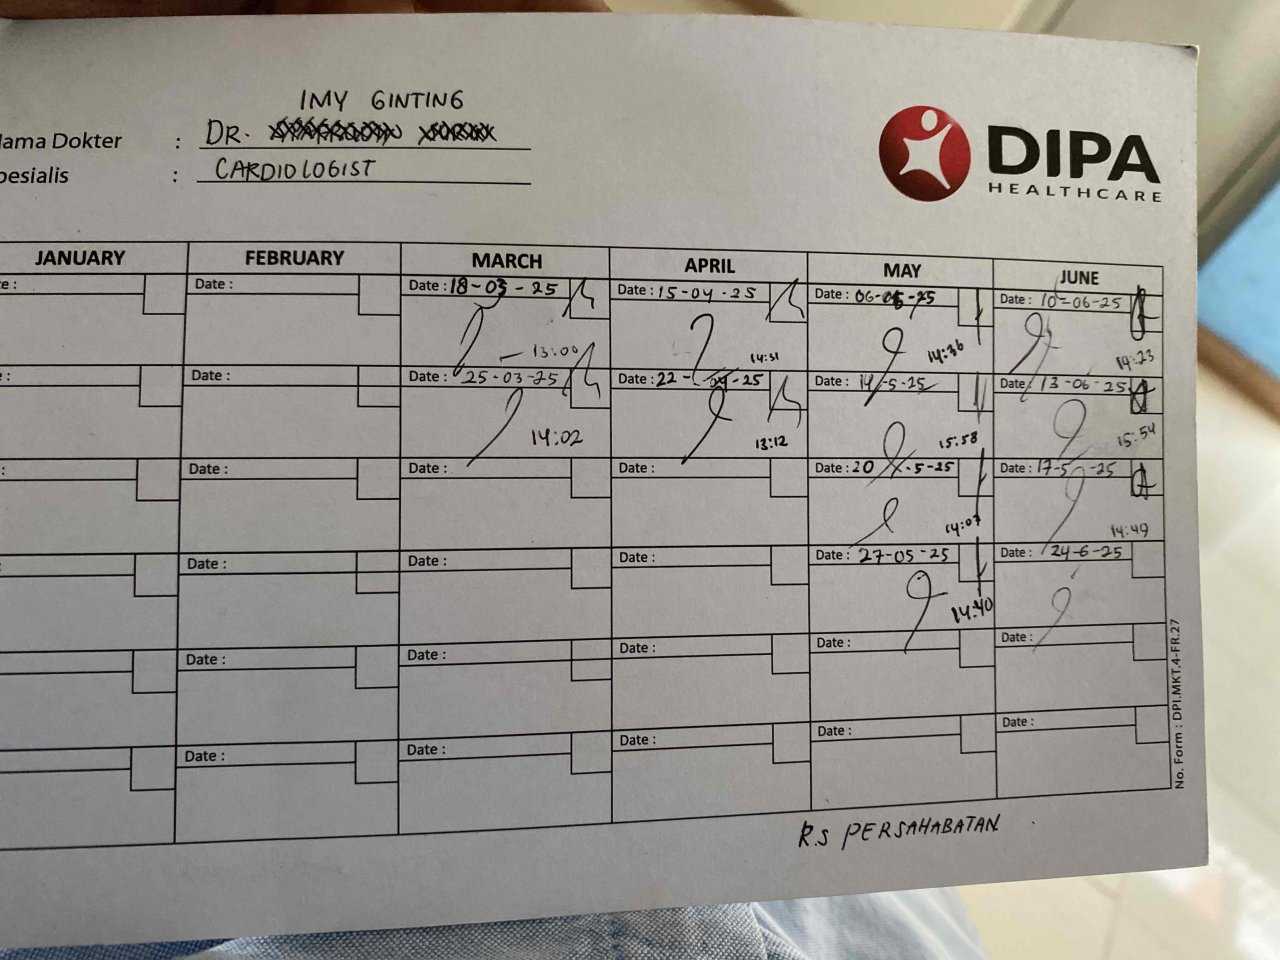 IMY GINTING
ama Dokter : DR.
pesialis : CARDIOLOGIST
DIPA
HEALTHCARE
JANUARY FEBRUARY MARCH APRIL MAY JUNE
e : Date : Date : 18-03-25 Date : 15-04-25 Date : 06-05-25 Date : 10-06-25
13:00 14:31 14:36 14:23
: Date : Date : 25-03-25 Date : 22-04-25 Date : 14-5-25 Date : 13-06-25
14:02 13:12 15:58 15:54
: Date : Date : Date : Date : 20-5-25 Date : 17-5-25
14:07 14:49
: Date : Date : Date : Date : 27-05-25 Date : 24-6-25
14:40
Date : Date : Date : Date : Date :
Date : Date : Date : Date : Date :
No. Form : DPI.MKT.4-FR.27
R.S PERSAHABATAN